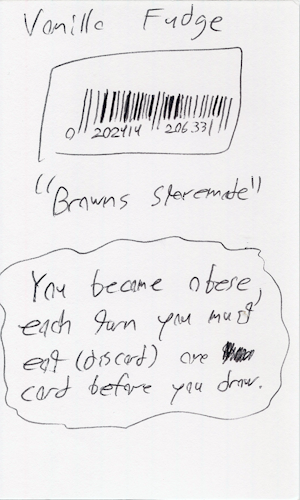 Vanilla Fudge
0 202414 206331
"Browns steremate"
You become obese,
each turn you must
eat (discard) one
card before you draw.